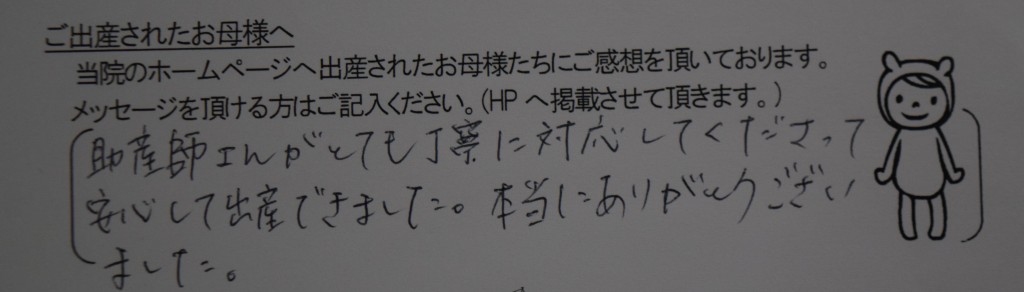 ご出産されたお母様へ
当院のホームページへ出産されたお母様たちにご感想を頂いております。
メッセージを頂ける方はご記入ください。(HPへ掲載させて頂きます。)
助産師さんがとても丁寧に対応してくださって
安心して出産できました。本当にありがとうござい
ました。